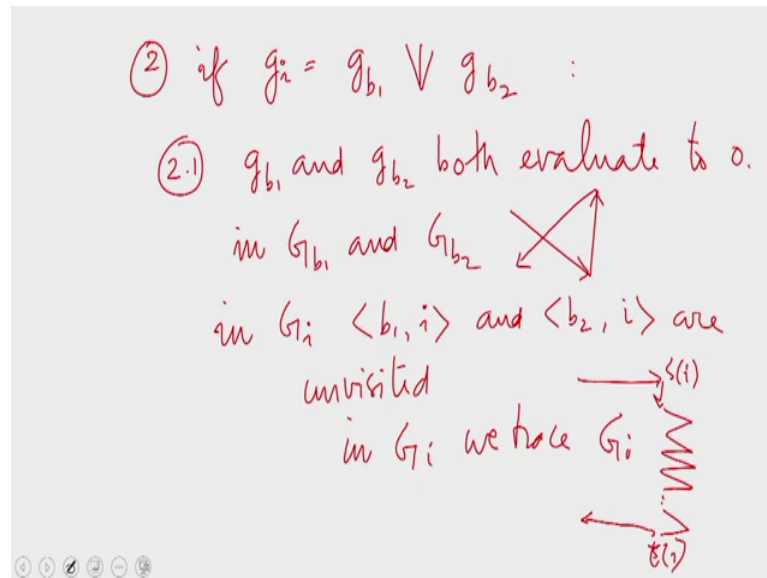 ② if gᵢ = g_b₁ V g_b₂ :
②.① g_b₁ and g_b₂ both evaluate to 0.
in G_b₁ and G_b₂
in Gᵢ <b₁, i> and <b₂, i> are
unvisited
s(i)
in Gᵢ we trace Gᵢ
t(i)